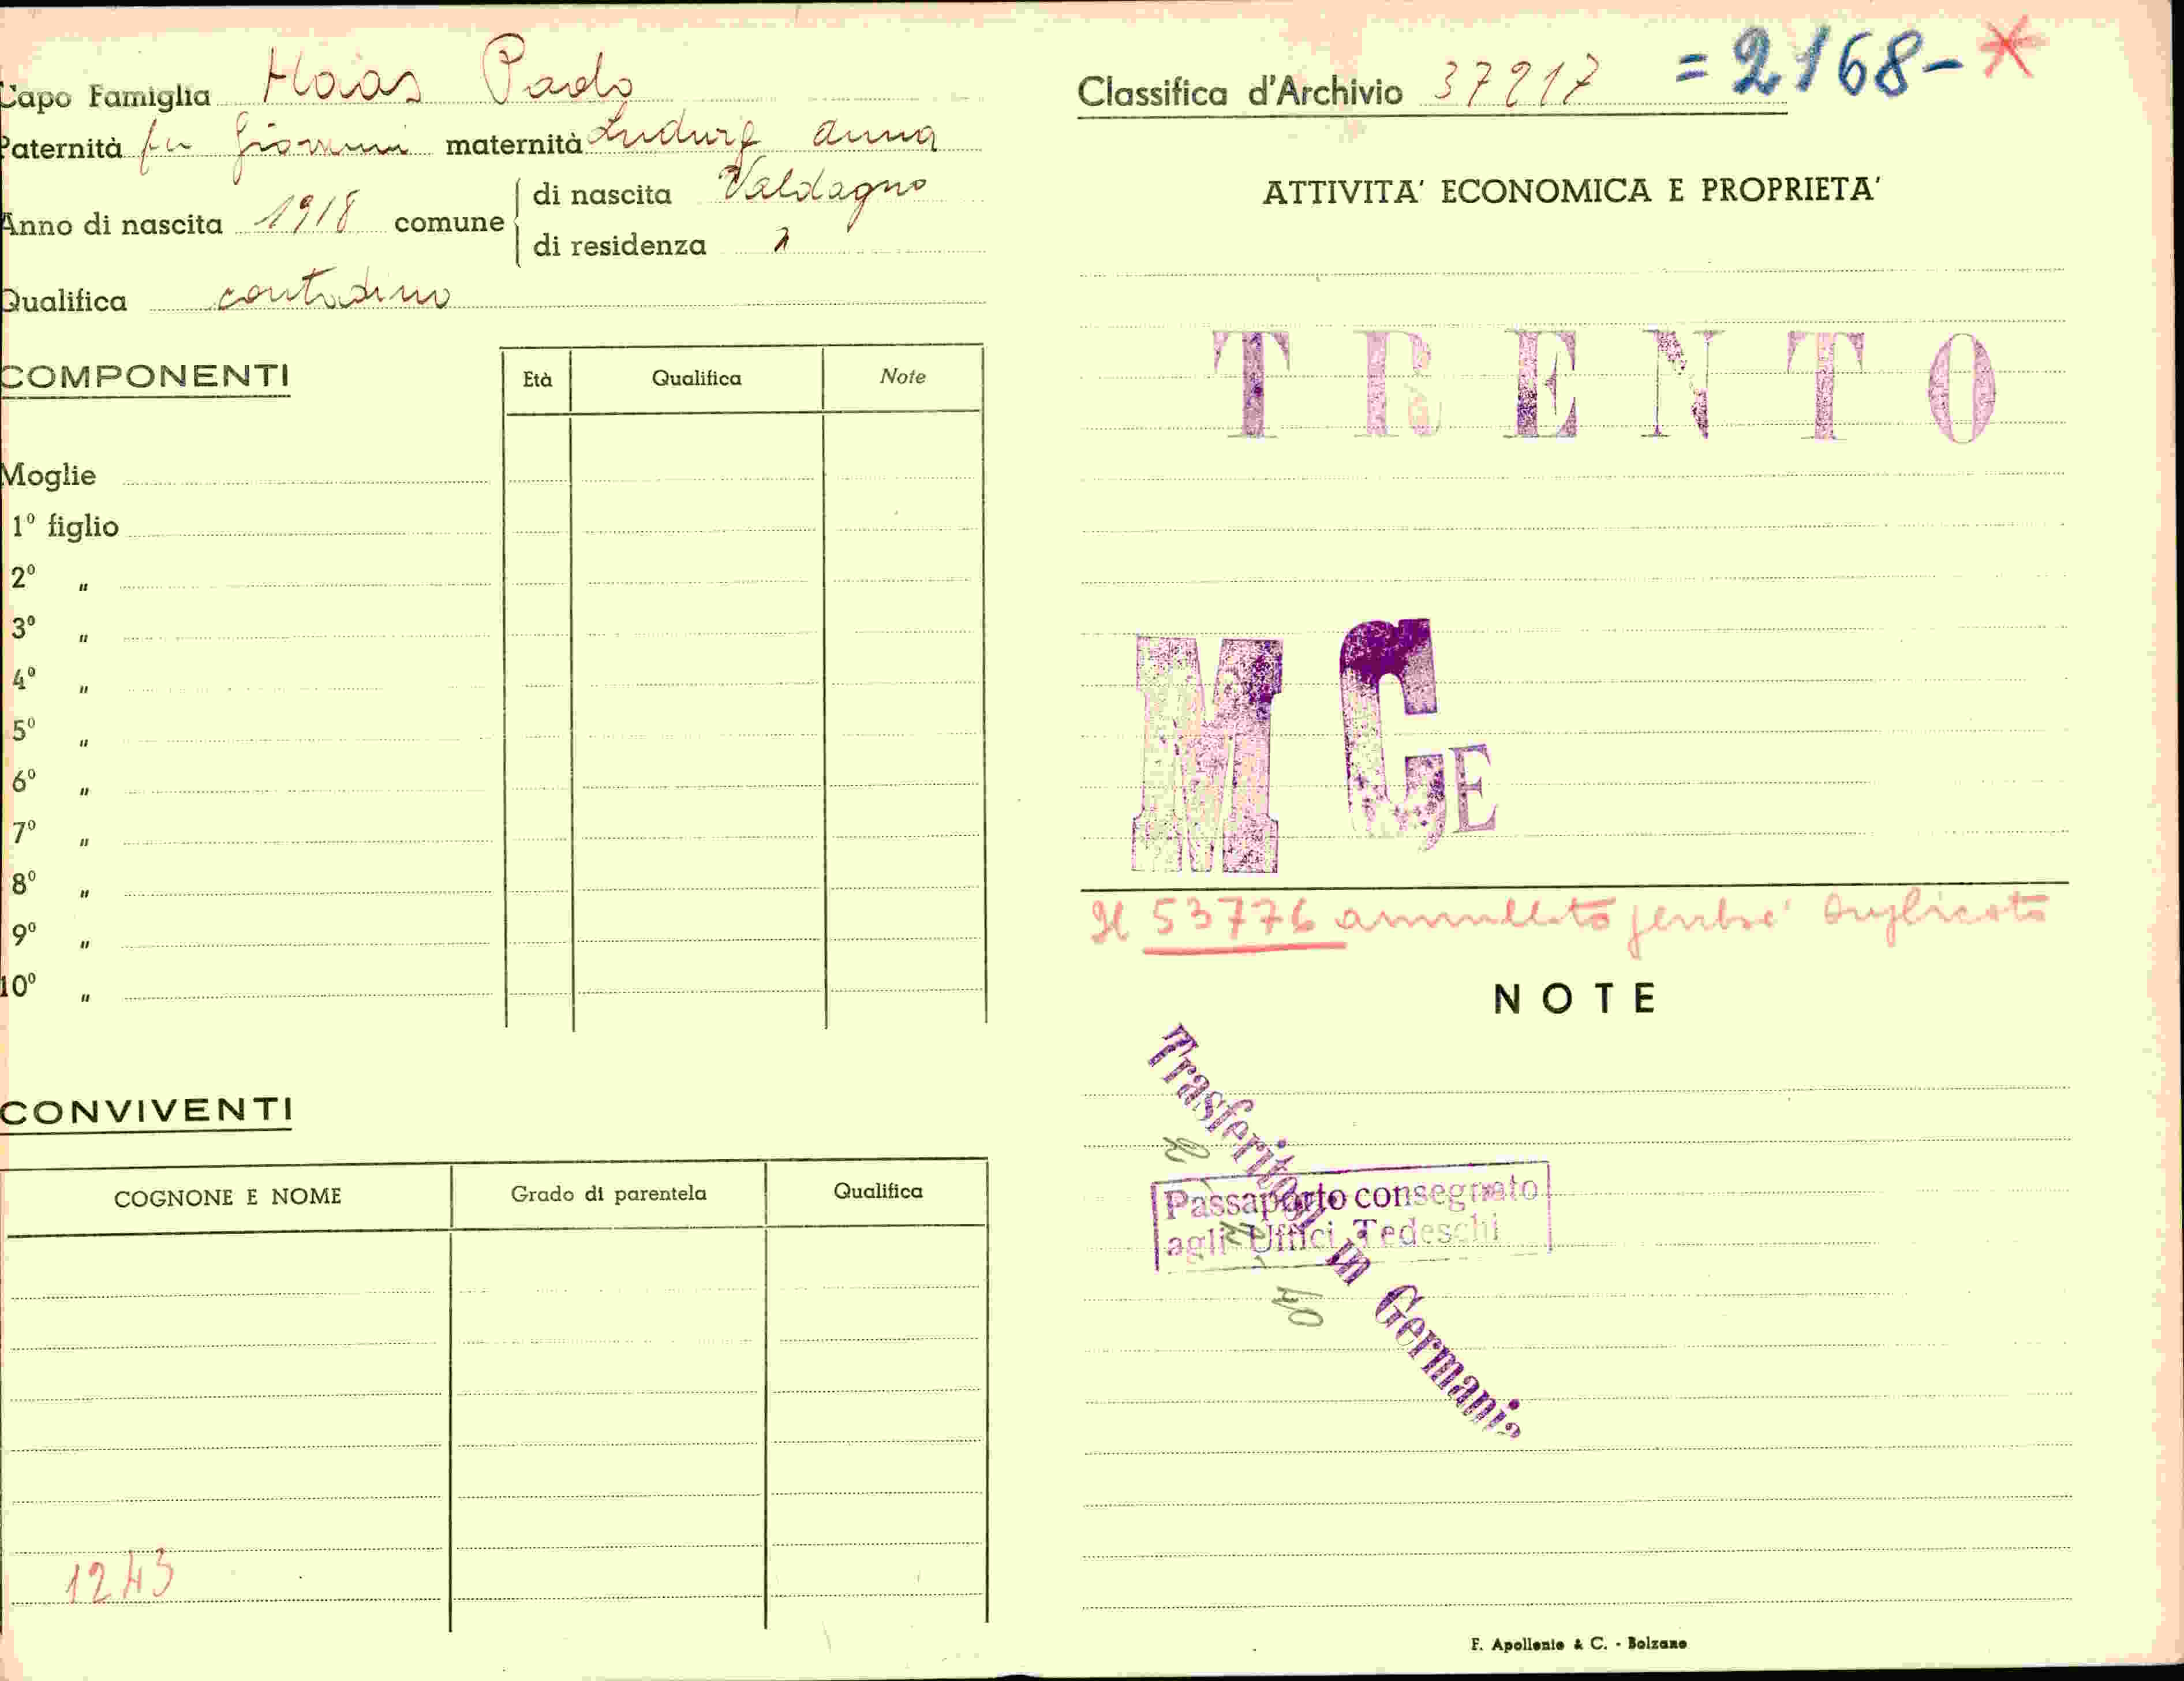 Capo Famiglia Haas Paolo
Paternità fu Giovanni maternità Ludwig Anna
Anno di nascita 1918 comune di nascita Valdagno
di residenza
Qualifica contadino
COMPONENTI Età Qualifica Note
Moglie
1º figlio
2º "
3º "
4º "
5º "
6º "
7º "
8º "
9º "
10º "
CONVIVENTI
COGNONE E NOME Grado di parentela Qualifica
1243
Classifica d'Archivio 37217 = 2168 - *
ATTIVITA' ECONOMICA E PROPRIETA'
TRENTO
M C E
Il 53776 annullato perché duplicato
NOTE
Trasferito in Germania
Passaporto consegnato
agli Uffici Tedeschi
40
F. Apollonio & C. - Bolzano